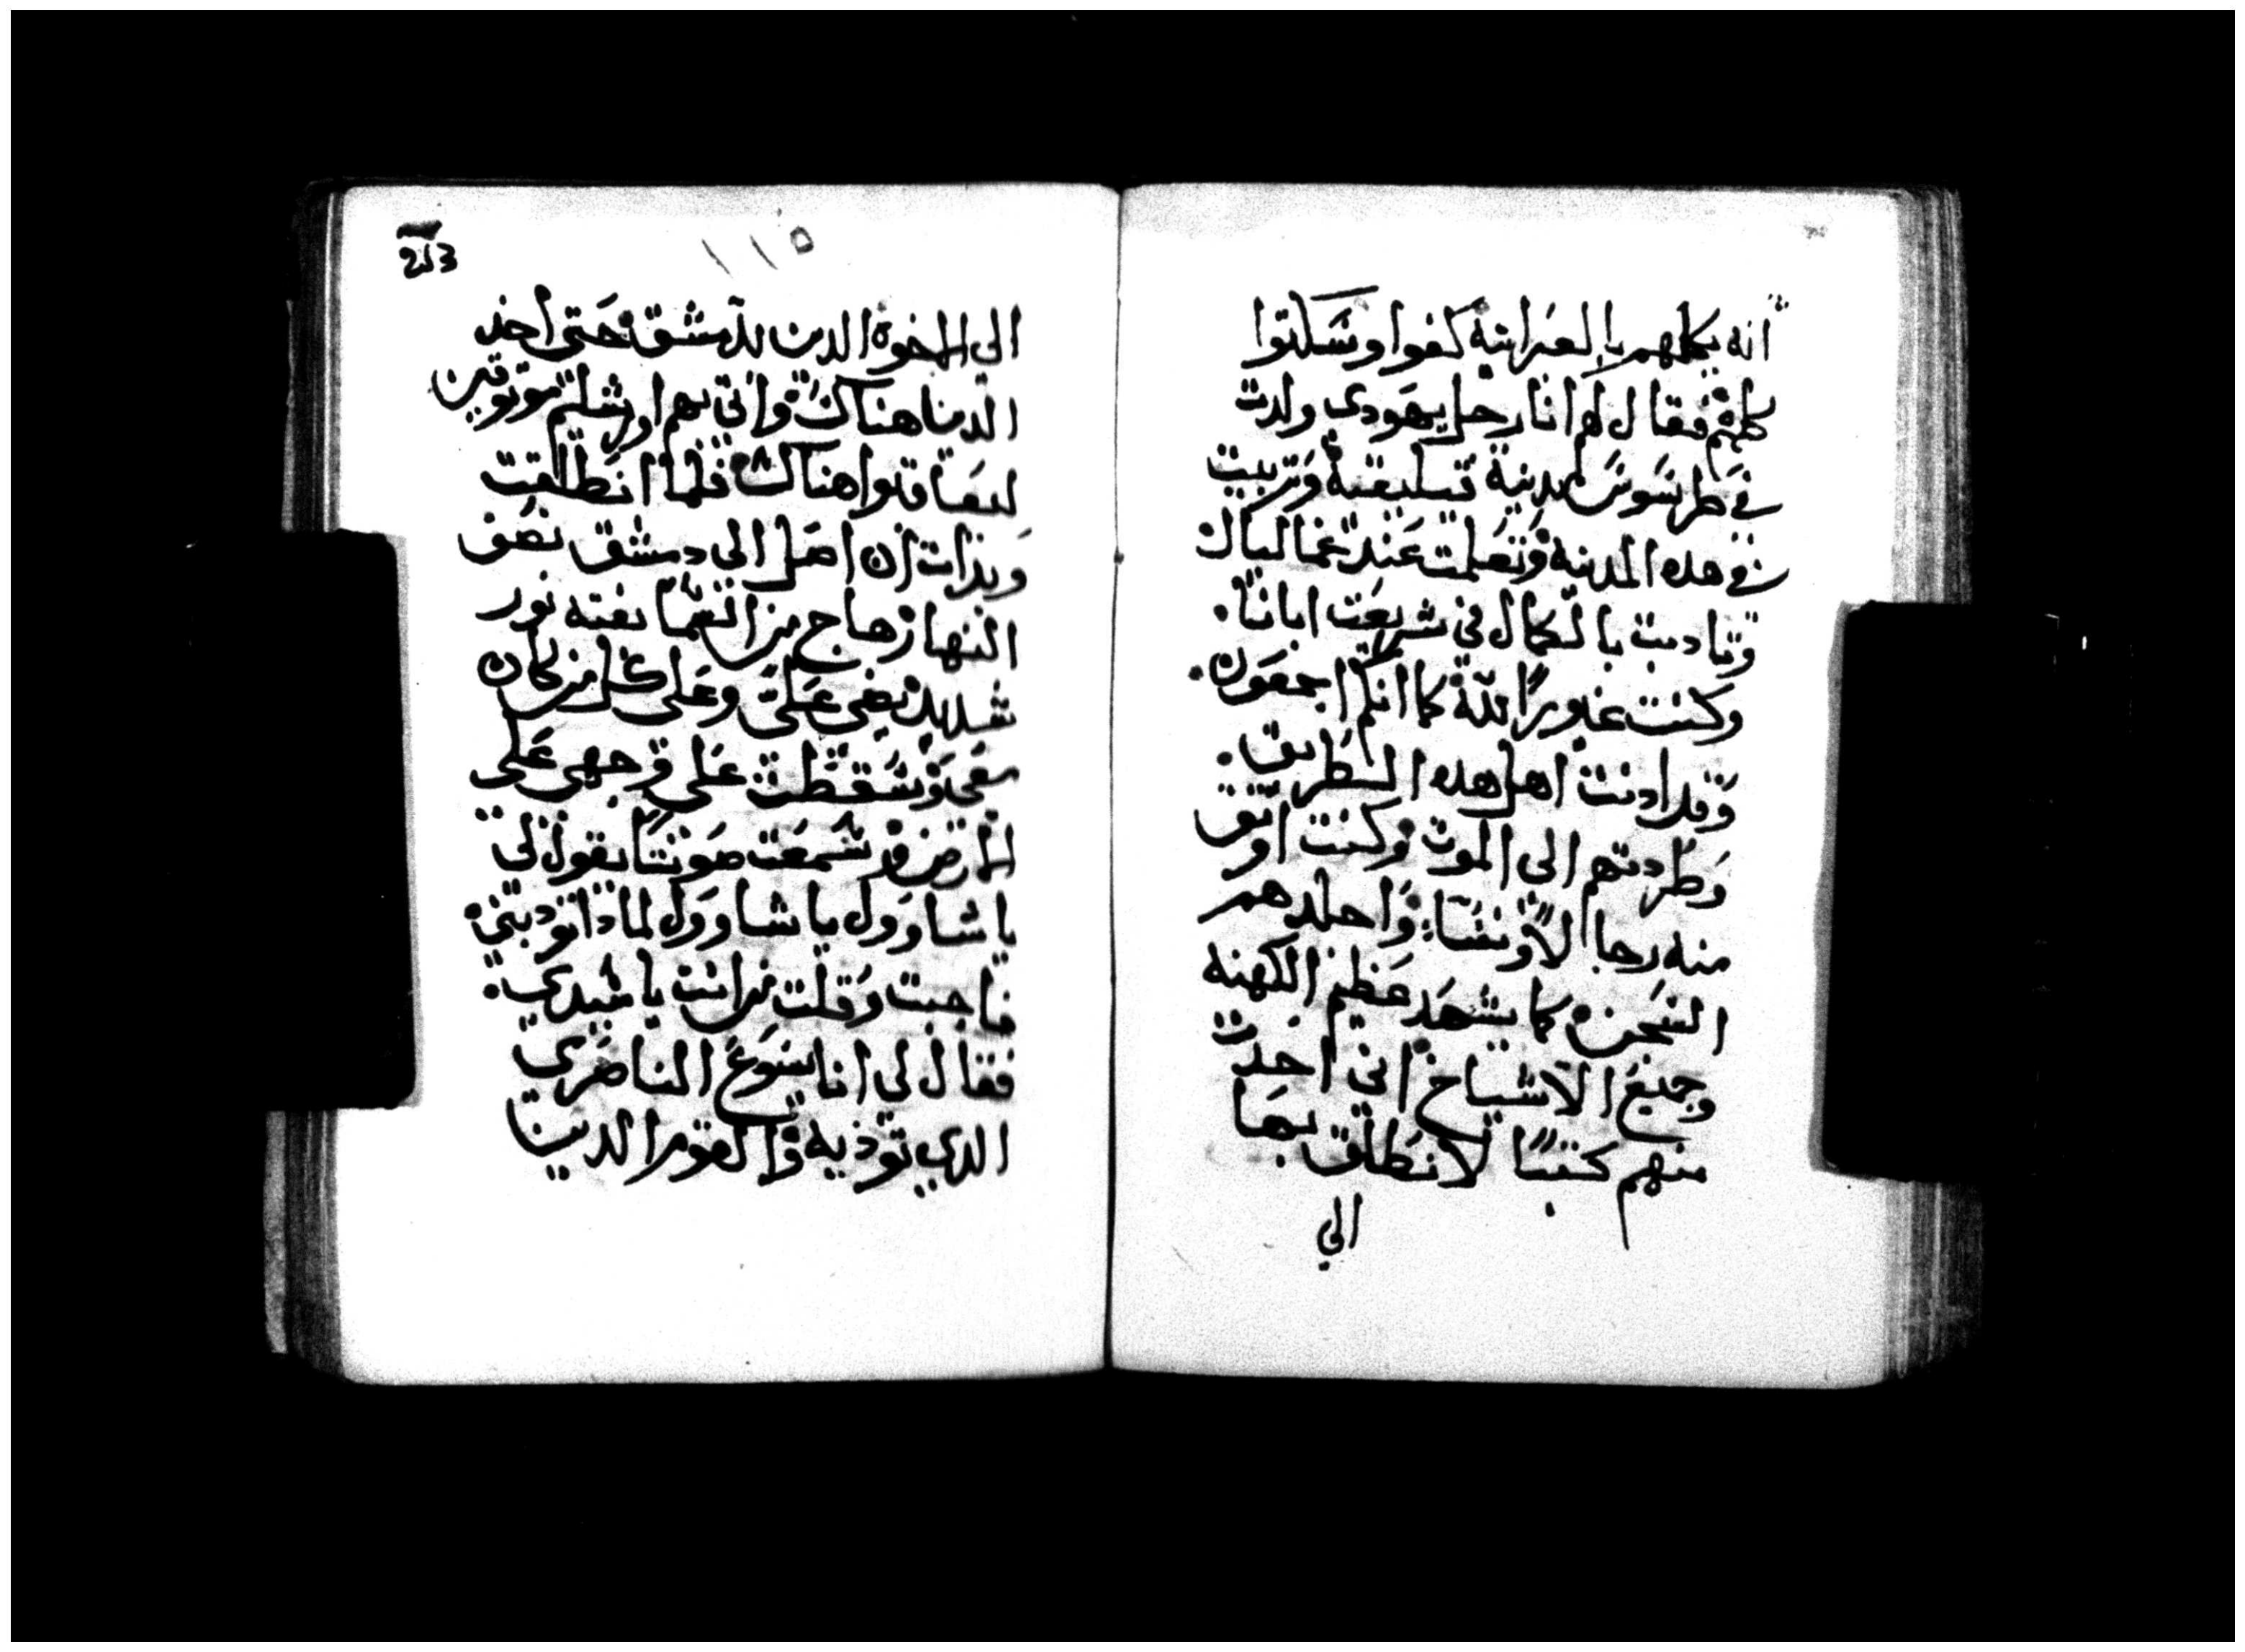 انه يكلمهم بالعبرانية كفوا وسكتوا
كلهم فقال لهم انا رجل يهودي ولدت
في طرسوس مدينة قيليقية وتربيت
في هده المدينة وتعلمت عند غمالياك
وتادبت بالكمال في شريعت ابانا.
وكنت غيورا لله كما انكم اجمعون.
وقد ادنت اهل هده الطريق.
وطردتهم الى الموت وكنت اوتق
منه رجالاً ونساء واجلدهم
السجن كما يشهد عظيم الكهنه
وجميع الاشياخ اني اخدت
منهم كتبًا لانطلق بها
الي
213
١١٥
الى الاخوة الدين بدمشق حتى اخد
الدين هناك واتي بهم اورشليم موتوقين
ليعاقبوا هناك فلما انطلقت
وبدات ان اصل الى دمشق نصف
النهار هاج من السما بغته نور
شديد يضي علي وعلى كل من كان
معي وسقطت على وجهي على
الارض وسمعت صوتا يقول لي
يا شاوول يا شاوول لمادا توديني
فاجبت وقلت من انت يا سيدي.
فقال لي انا يسوع الناصري
الدي توذيه والقوم الدين